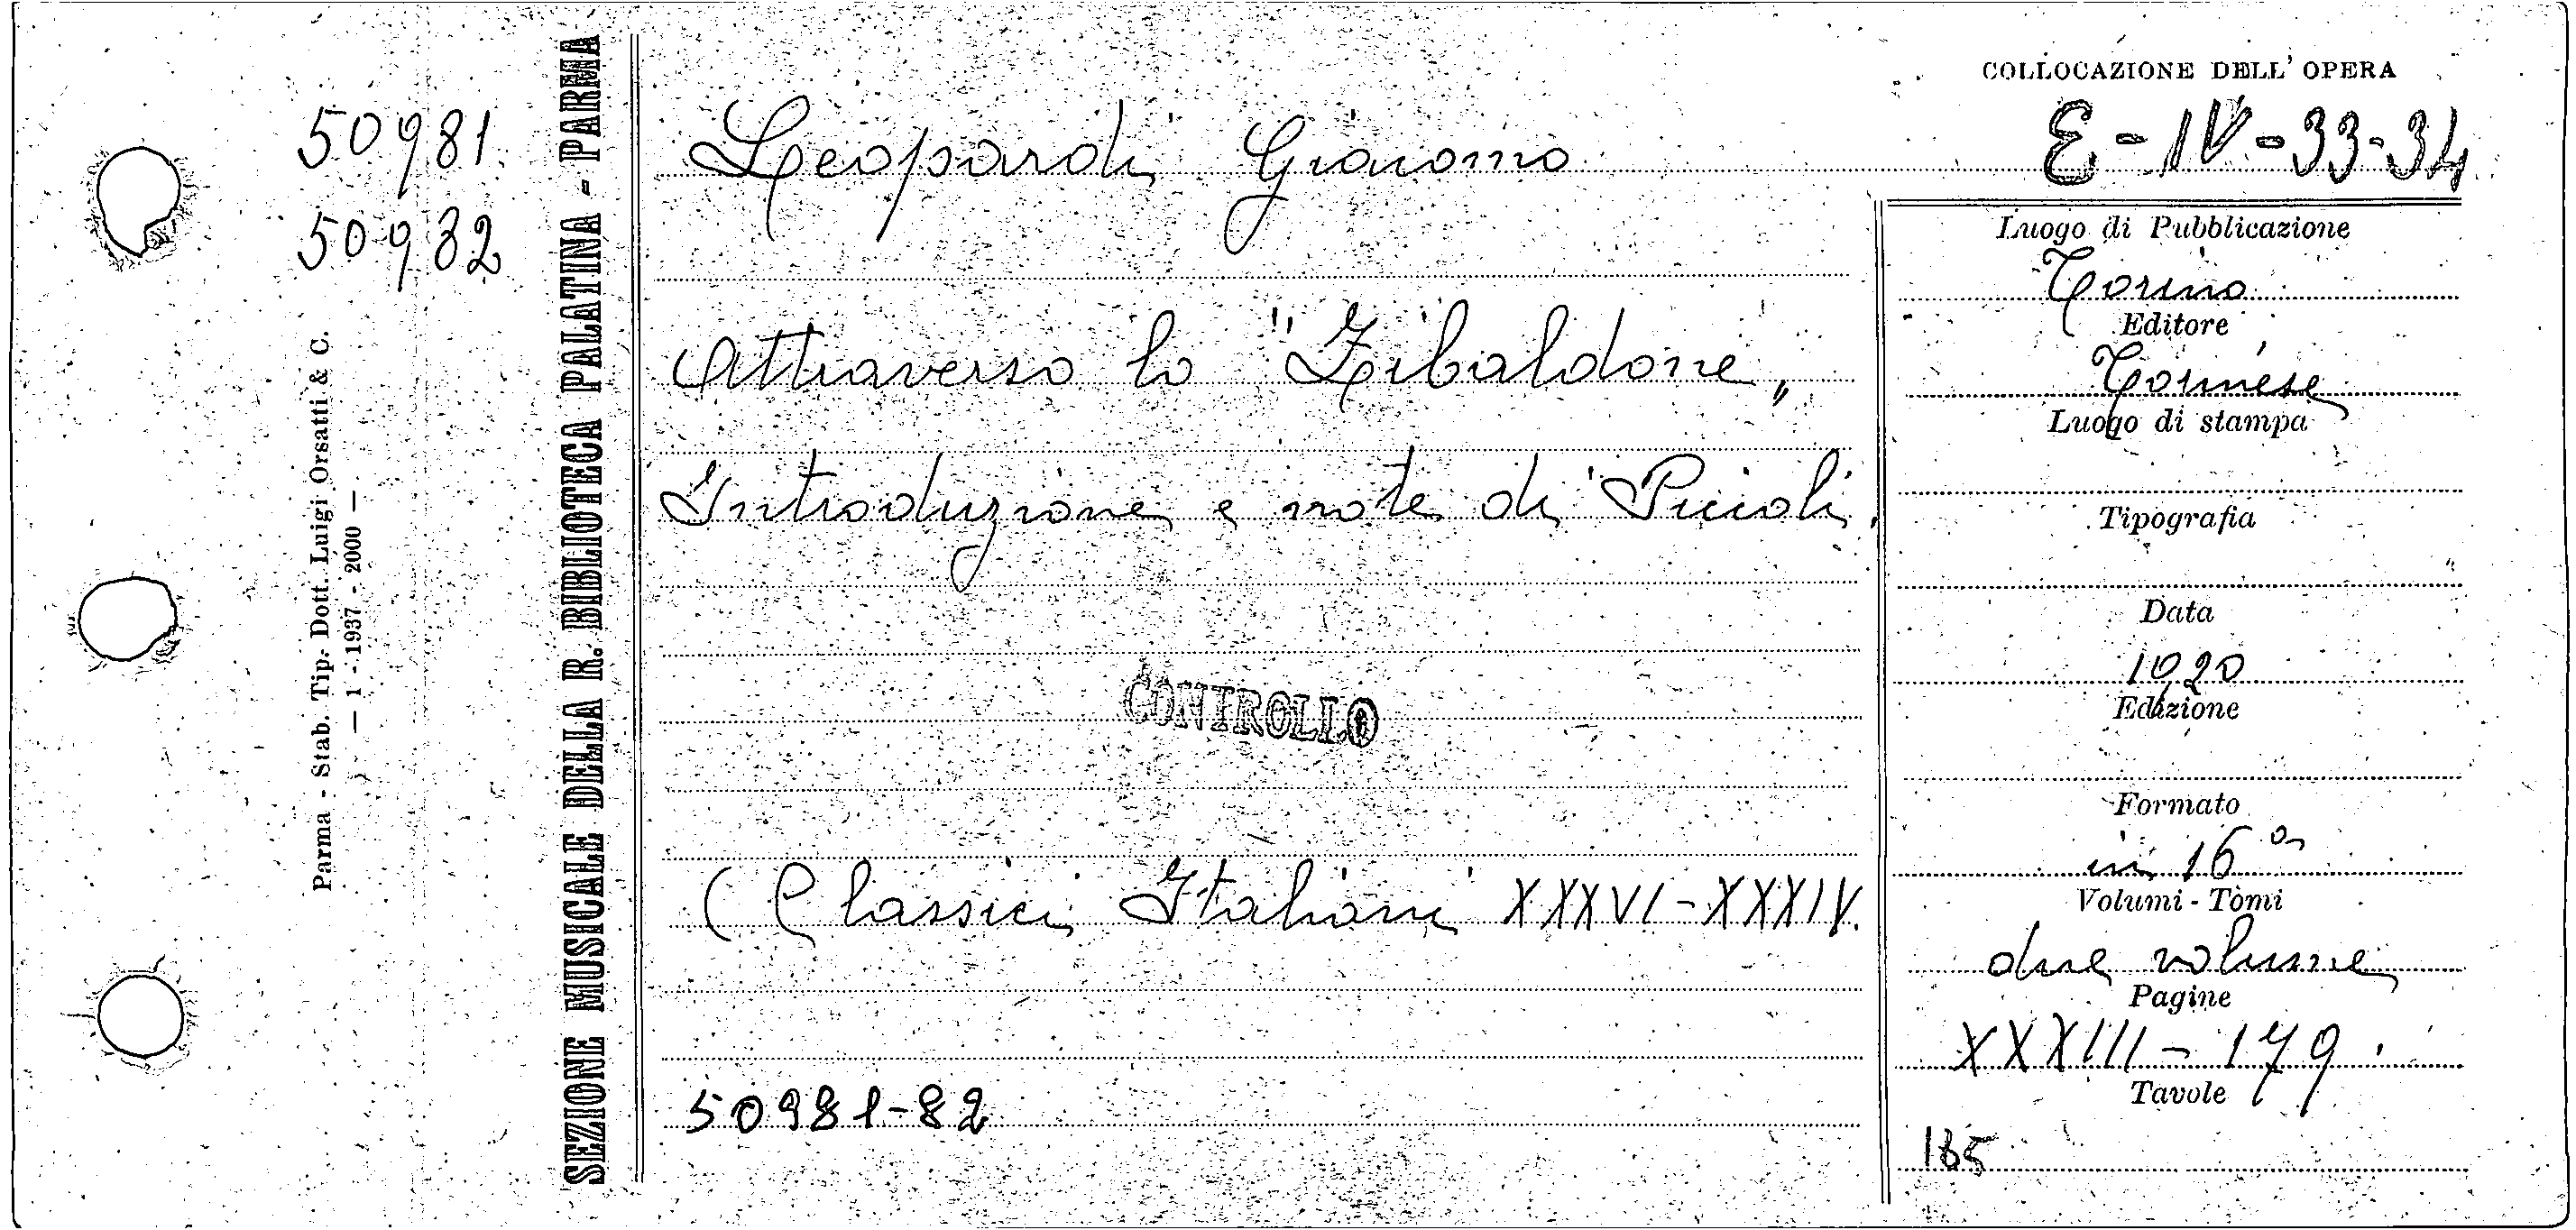 50981
50982
Parma - Stab. Tip. Dott. Luigi Orsatti & C.
— 1 - 1937 - 2000 —
SEZIONE MUSICALE DELLA R. BIBLIOTECA PALATINA - PARMA
Leopardi Giacomo
Attraverso lo "Zibaldone„
Introduzione e note di Piccoli.
CONTROLLO
(Classici Italiani XXXVI-XXXIV.
50981-82
COLLOCAZIONE DELL' OPERA
E-IV-33-34
Luogo di Pubblicazione
Torino
Editore
Torinese
Luogo di stampa
Tipografia
Data
1920
Edizione
Formato
in 16º
Volumi - Tomi
due volume
Pagine
XXXIII-179.
Tavole
185